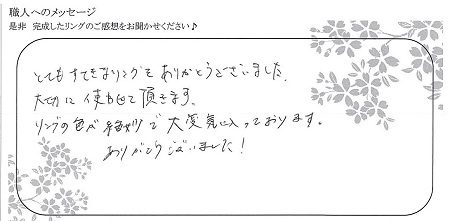 職人へのメッセージ
是非 完成したリングのご感想をお聞かせください♪
とてもすてきなリングをありがとうございました。
大切に使わせて頂きます。
リングの色が絶妙で大変気に入っております。
ありがとうございました!